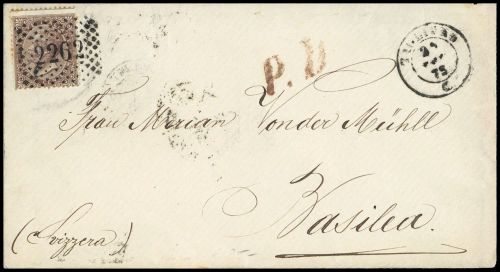 2262
P.D
75
Frau Merian Vonder Mühll
Basilea.
(Svizzera)